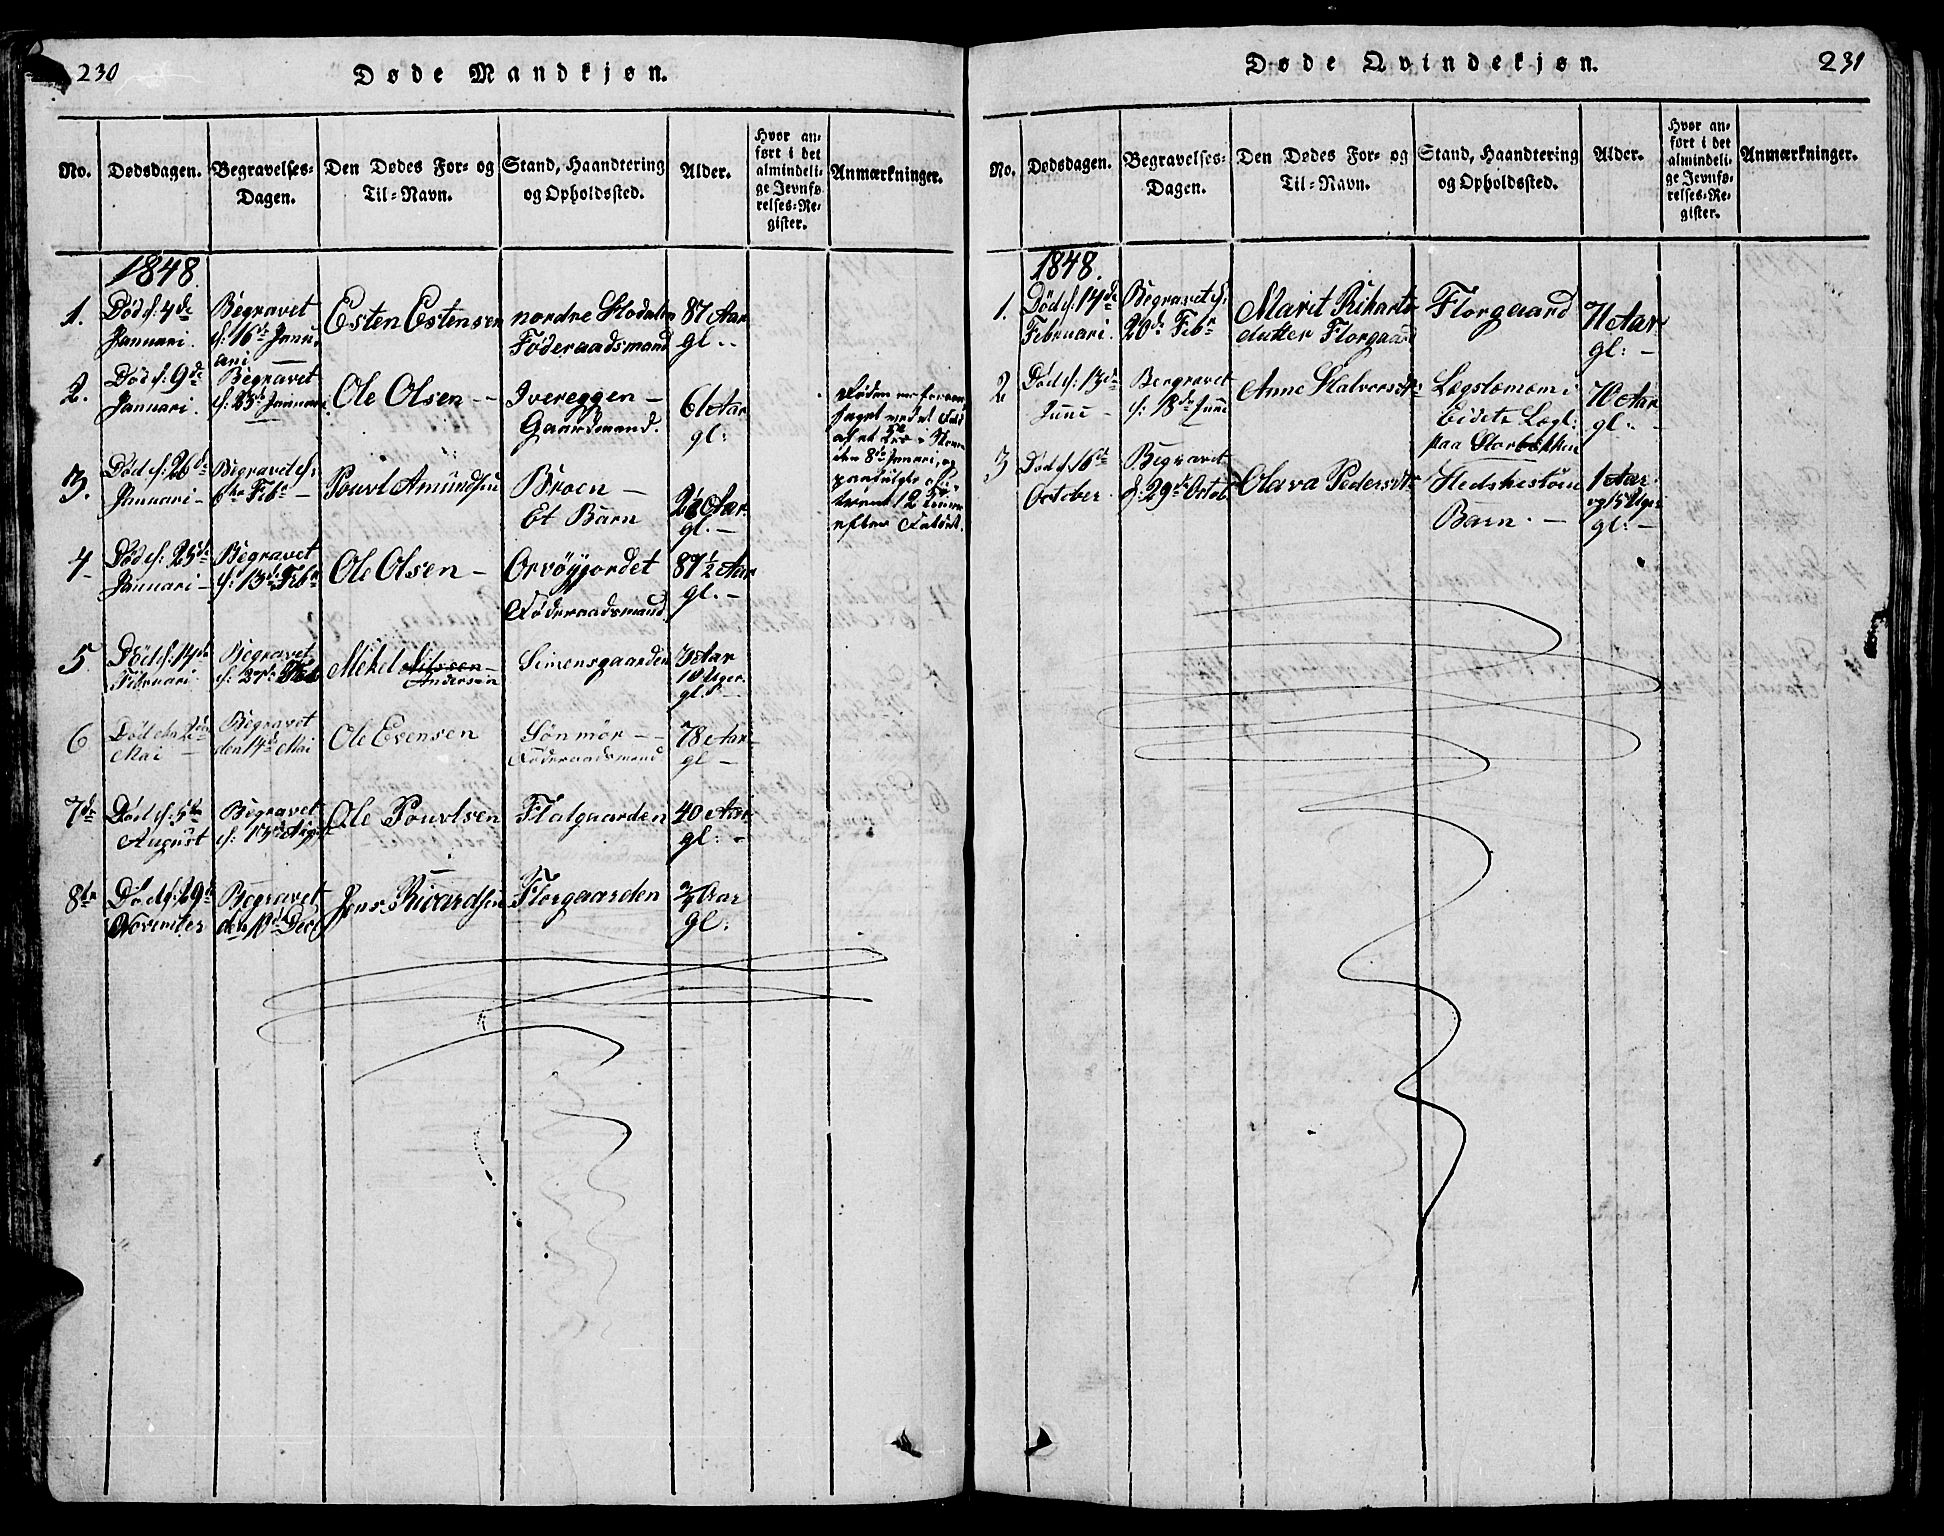 230
Døde Mandkjøn.
No.
Dødsdagen.
Begravelses-
Dagen.
Den Dødes For- og
Til-Navn.
Stand, Haandtering
og Opholdssted.
Alder.
Hvor an-
ført i det
almindeli-
ge Jevnfø-
relses-Re-
gister.
Anmærkninger.
1848.
1.
Død d: 4de
Januari.
Begravet
d: 16de Janu-
ari —
Esten Estensen
nordre
Føderaadsmand
87 Aar
gl..
2.
Død d: 9de
Januari.
Begravet
d: 23de Januari
Ole Olsen —
Ivereggen —
Gaardmand.
61 Aar
gl:
Døden var foraar-
saget ved et Fald
8de Januari, og
12 Timer
efter Faldet.
3.
Død d: 20de
Januari —
Begravet d:
6te Febr —
Pouvl Amundsen
Broen —
Et Barn
Aar
gl. —
4
Død d: 25de
Januari —
Begravet
d: 13de Febr
Ole Olsen —
Orvøyjordet
Føderaadsmand
87½ Aar
gl. —
5
Død d: 14de
Februari
Begravet
d: 27de Feb
Mekel Nilssen —
Andersen
Simensgaarden
Aar
18 Uger
gl: —
6
Død den
Mai —
Begravet
den 14de Mai
Ole Evensen
Sønmør —
Føderaadsmand
78 Aar
gl —
7de
Død d: 5te
August
Begravet
d: 13de August
Ole Pouvlsen
Flatgaarden
40 Aar
gl: —
8de
Død d: 29de
November
Begravet
den 10de Dec
Jens Rivardsen
Florgaarden
¾ Aar
gl:
Døde Qvindekjøn.
231
No.
Dødsdagen.
Begravelses-
Dagen.
Den Dødes For- og
Til-Navn.
Stand, Haandtering
og Opholdssted.
Alder.
Hvor an-
ført i det
almindeli-
ge Jevnfø-
relses-Re-
gister.
Anmærkninger.
1848.
1.
Død d: 14de
Februari.
Begravet d:
20de Febr
Marit Rikarts
datter Florgaard
Florgaard
71 Aar
gl: —
2
Død d: 13de
Juni —
Bergravet
d: 18de Juni
Anne Halversdtr
Lægslemem i
Eidets Lægd:
paa Storbekken
70 Aar
gl.. —
3
Død d: 16de
October.
Begravet
d: 29de Octob
Olava Pedersdtr
Barn. —
1 Aar
og 15 Uger
gl: —